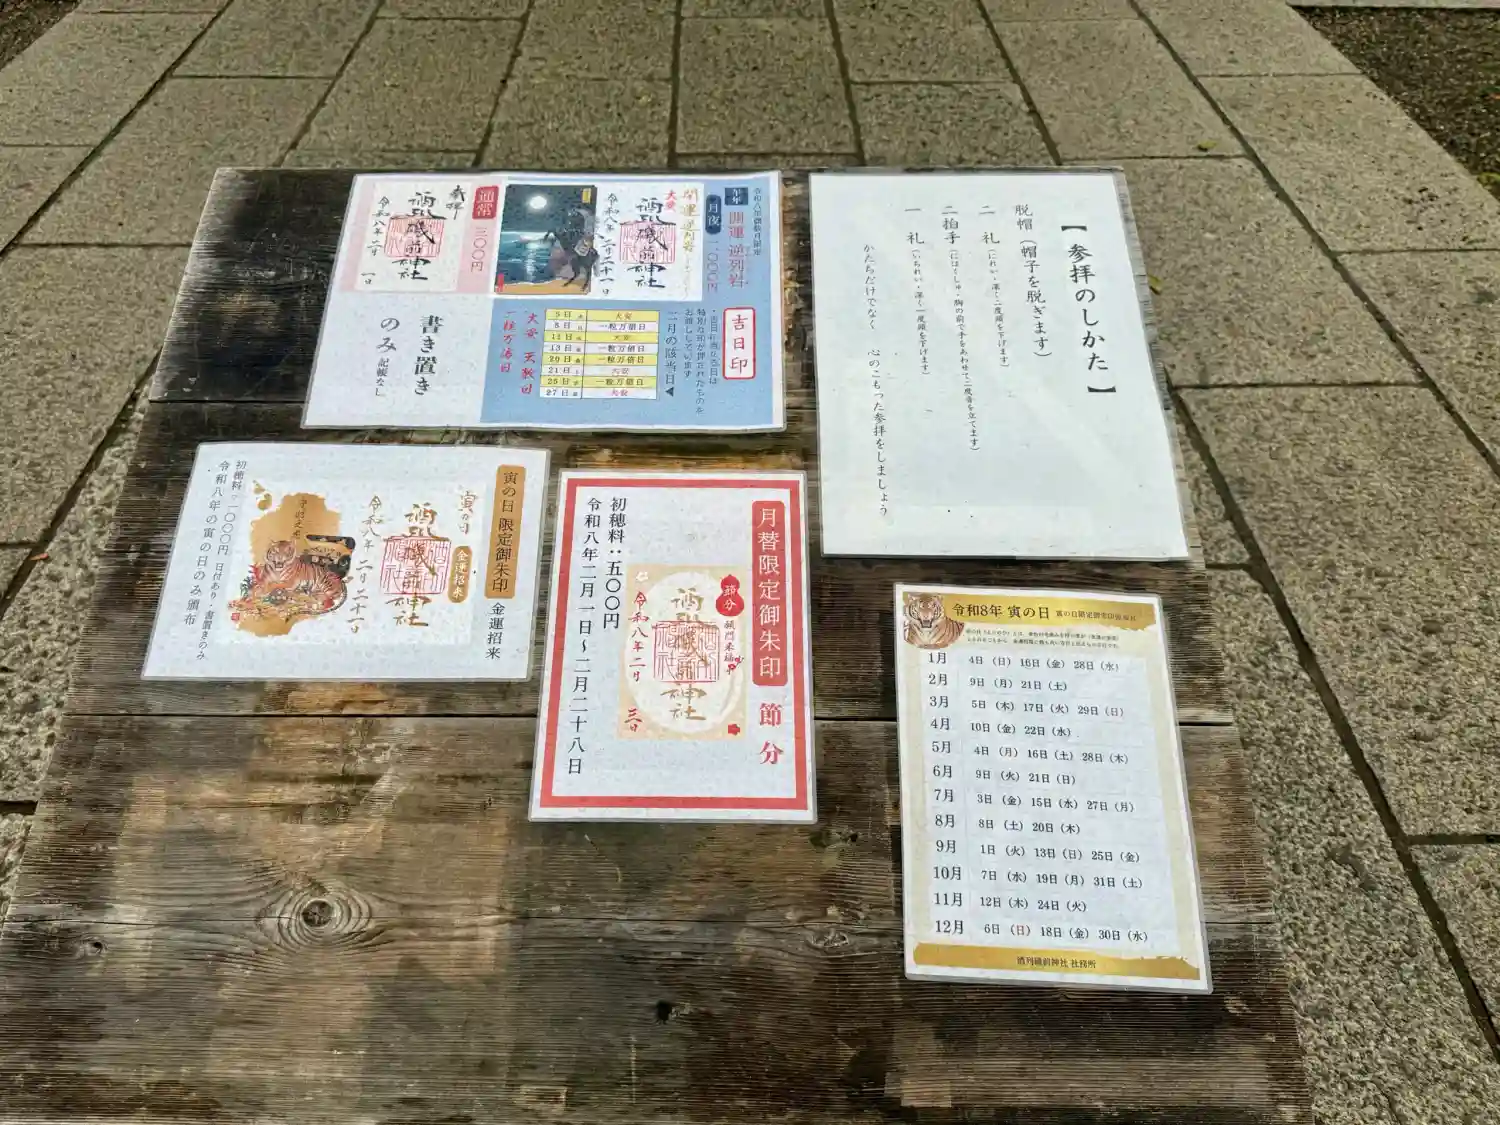 通常
三〇〇円
奉拝
酒列磯前神社
令和八年二月 一日
書き置き
のみ 記帳なし
午年
開運 逆列岩
月夜
一、〇〇〇円
開運逆列岩
大安
酒列磯前神社
令和八年二月二十一日
吉日印
・吉日に当たる日は
特別な印が押されたものを
お渡ししています
二月の該当日◀
5日 大安
8日 一粒万倍日
11日 大安
13日 一粒万倍日
20日 一粒万倍日
21日 大安
25日 一粒万倍日
27日 大安
大安 天赦日
一粒万倍日
【参拝のしかた】
脱帽(帽子を脱ぎます)
二 礼(にれい・深く二度頭を下げます)
二拍手(にはくしゅ・胸の前で手をあわせて二度音を立てます)
一 礼(いちれい・深く一度頭を下げます)
かたちだけでなく 心のこもった参拝をしましょう
寅の日 限定御朱印
金運招来
寅の日
金運招来
酒列磯前神社
令和八年 二月二十一日
初穂料:一〇〇〇円 日付あり・書置きのみ
令和八年の寅の日のみ頒布
月替限定御朱印
節分
節分
酒列磯前神社
令和八年二月 三日
初穂料:五〇〇円
令和八年二月一日~二月二十八日
令和8年 寅の日 寅の日限定御朱印頒布日
1月 4日(日)16日(金)28日(水)
2月 9日(月)21日(土)
3月 5日(木)17日(火)29日(日)
4月 10日(金)22日(水)
5月 4日(月)16日(土)28日(木)
6月 9日(火)21日(日)
7月 3日(金)15日(水)27日(月)
8月 8日(土)20日(木)
9月 1日(火)13日(日)25日(金)
10月 7日(水)19日(月)31日(土)
11月 12日(木)24日(火)
12月 6日(日)18日(金)30日(水)
酒列磯前神社 社務所